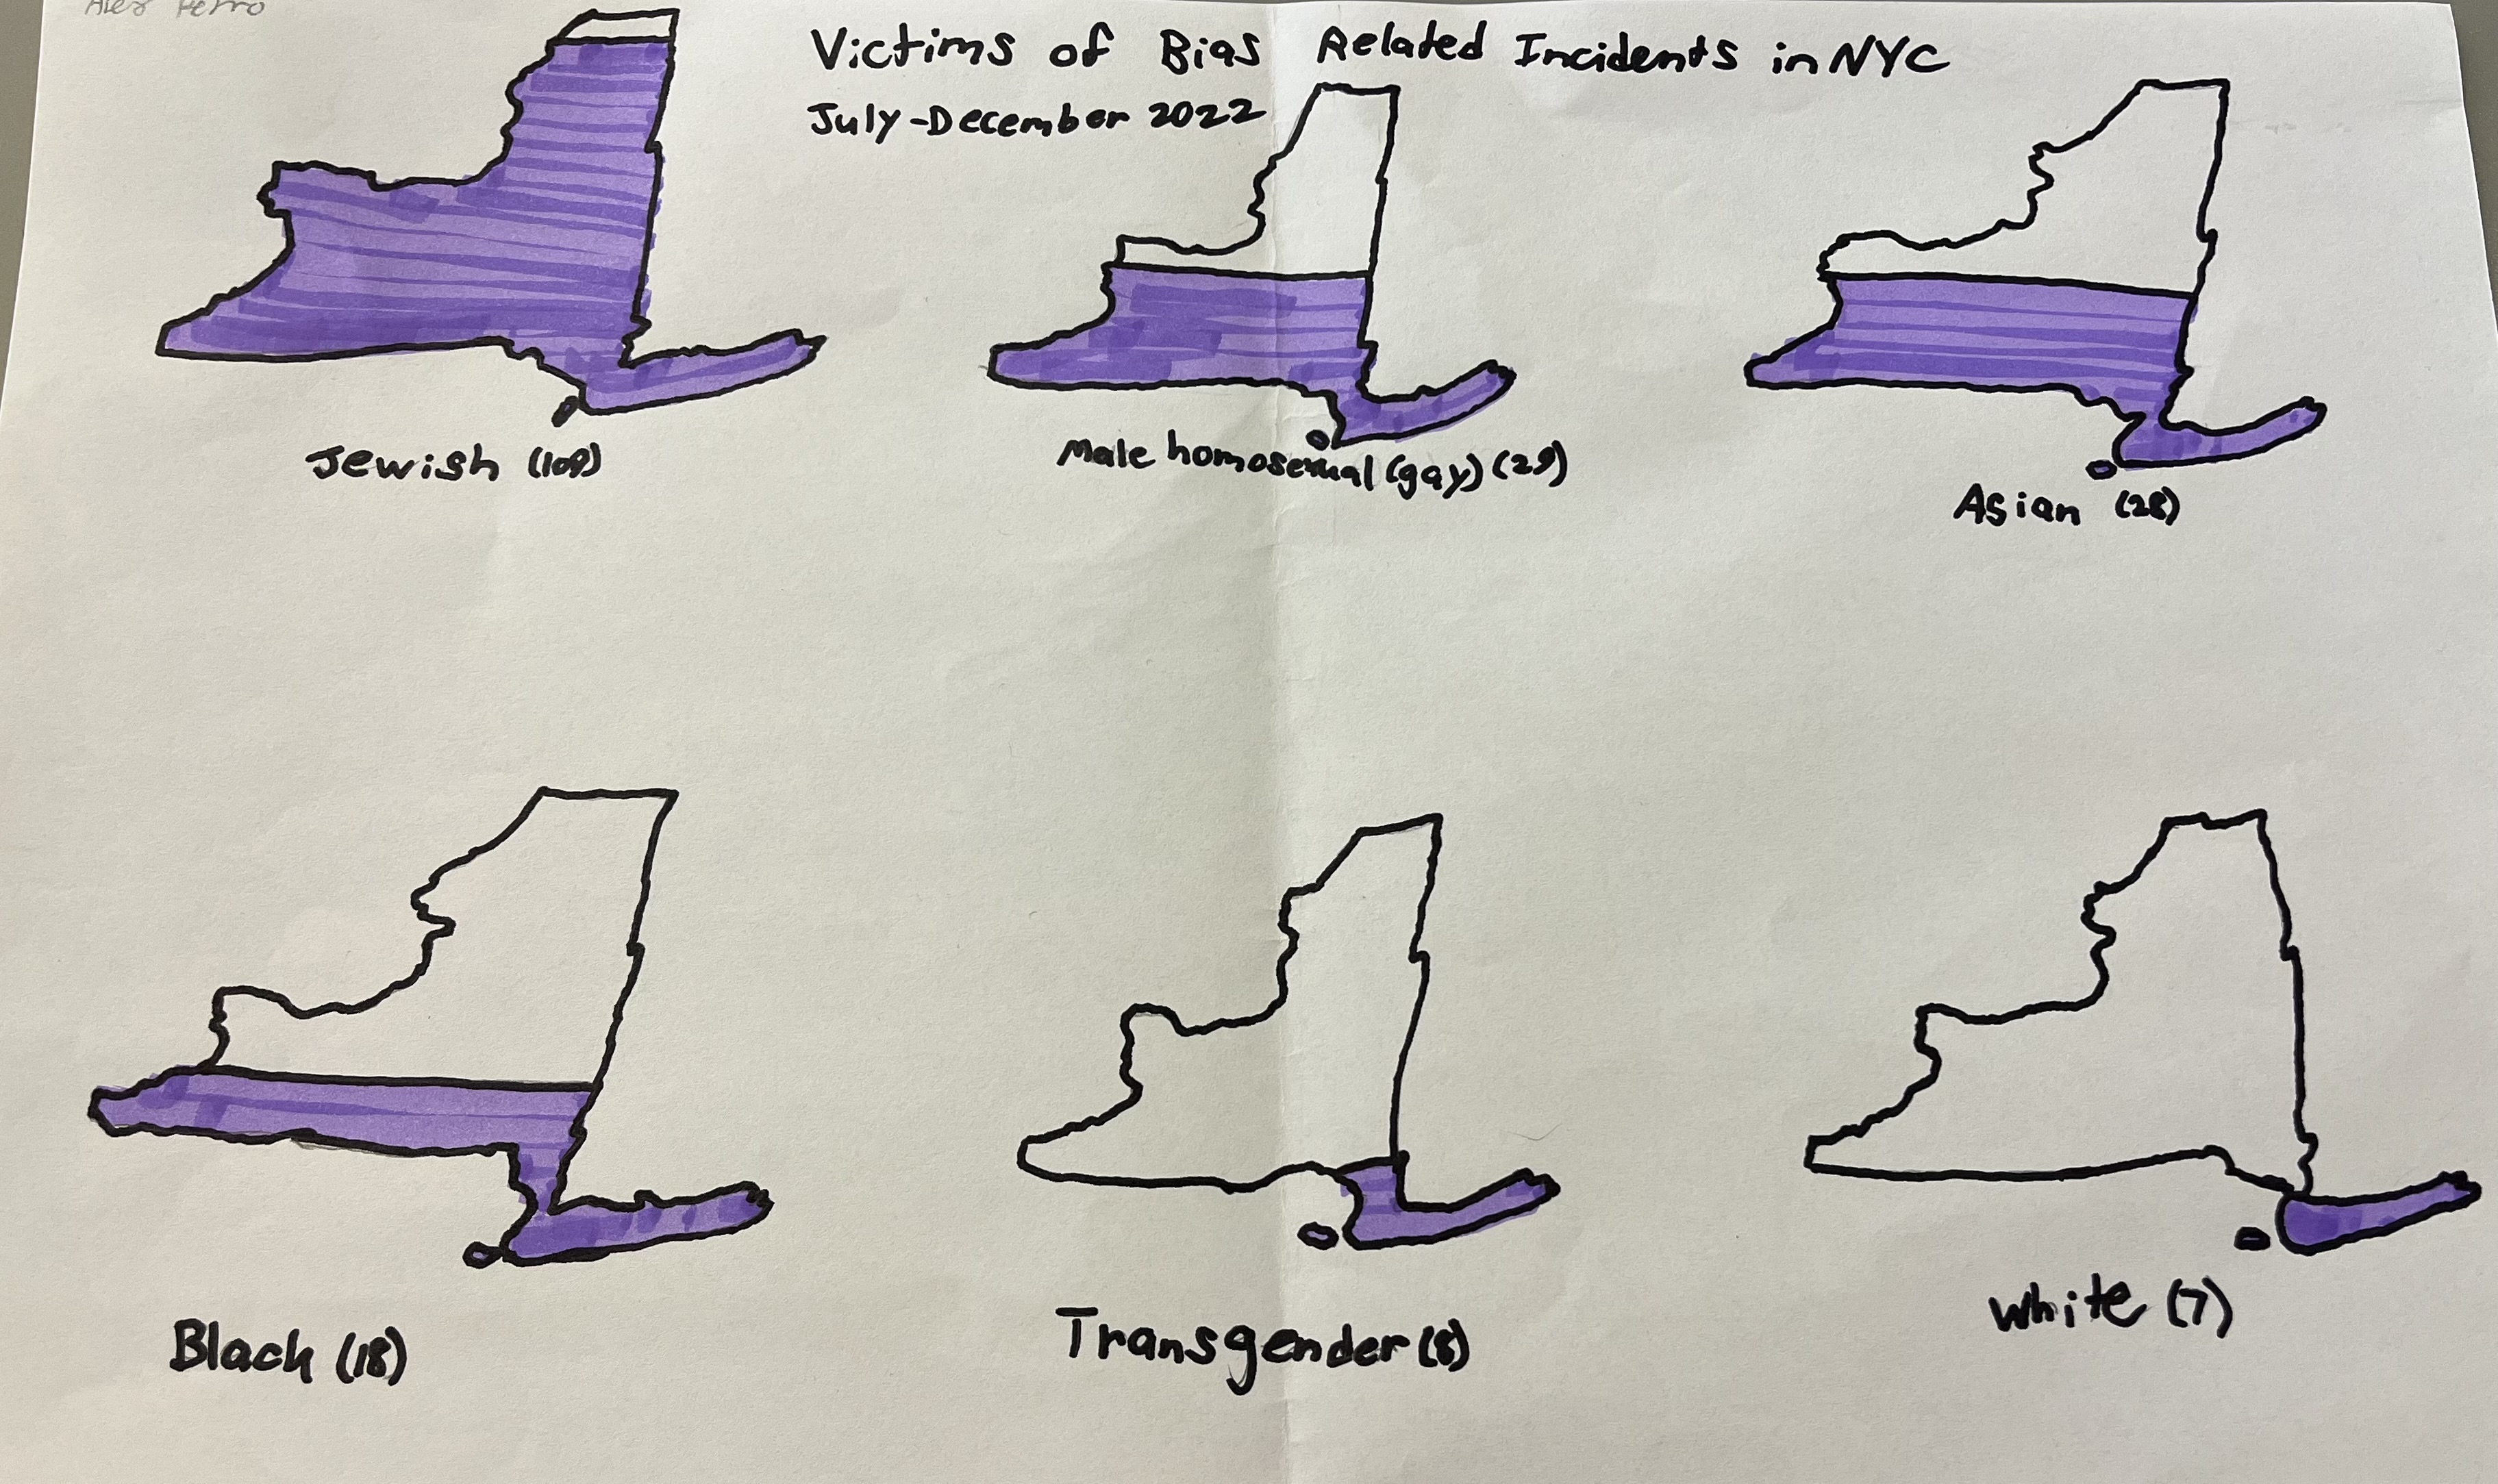 Victims of Bias Related Incidents in NYC
July-December 2022
Jewish (109)
Male homosexual (gay) (29)
Asian (28)
Black (18)
Transgender (8)
White (7)